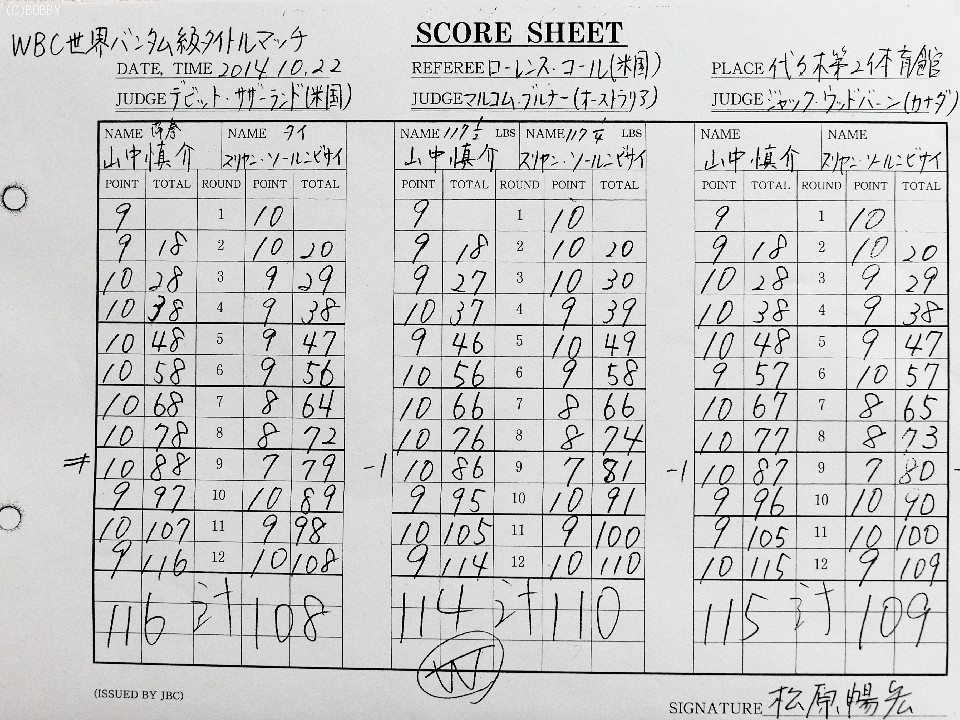 (C)BOBBY
WBC世界バンタム級タイトルマッチ
SCORE SHEET
DATE, TIME 2014.10.22 REFEREE ローレンス・コール(米国) PLACE 代々木第2体育館
JUDGE デビット・サザーランド(米国) JUDGE マルコム・ブルナー(オーストラリア) JUDGE ジャック・ウッドバーン(カナダ)
NAME 帝拳 NAME タイ NAME 117 1/2 LBS NAME 117 1/4 LBS NAME NAME
山中慎介 スリヤン・ソールンビサイ 山中慎介 スリヤン・ソールンビサイ 山中慎介 スリヤン・ソールンビサイ
POINT TOTAL ROUND POINT TOTAL POINT TOTAL ROUND POINT TOTAL POINT TOTAL ROUND POINT TOTAL
9 1 10 9 1 10 9 1 10
9 18 2 10 20 9 18 2 10 20 9 18 2 10 20
10 28 3 9 29 9 27 3 10 30 10 28 3 9 29
10 38 4 9 38 10 37 4 9 39 10 38 4 9 38
10 48 5 9 47 9 46 5 10 49 10 48 5 9 47
10 58 6 9 56 10 56 6 9 58 9 57 6 10 57
10 68 7 8 64 10 66 7 8 66 10 67 7 8 65
10 78 8 8 72 10 76 8 8 74 10 77 8 8 73
10 88 9 7 79 -1 10 86 9 7 81 -1 10 87 9 7 80 -
9 97 10 10 89 9 95 10 10 91 9 96 10 10 90
10 107 11 9 98 10 105 11 9 100 9 105 11 10 100
9 116 12 10 108 9 114 12 10 110 10 115 12 9 109
116 計 108 114 計 110 115 計 109
W
(ISSUED BY JBC)
SIGNATURE 松原暢宏